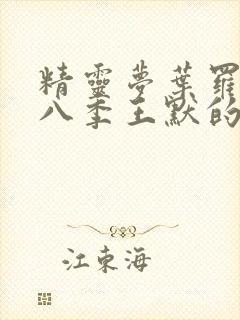 精靈夢葉羅
八季王默的
江東海